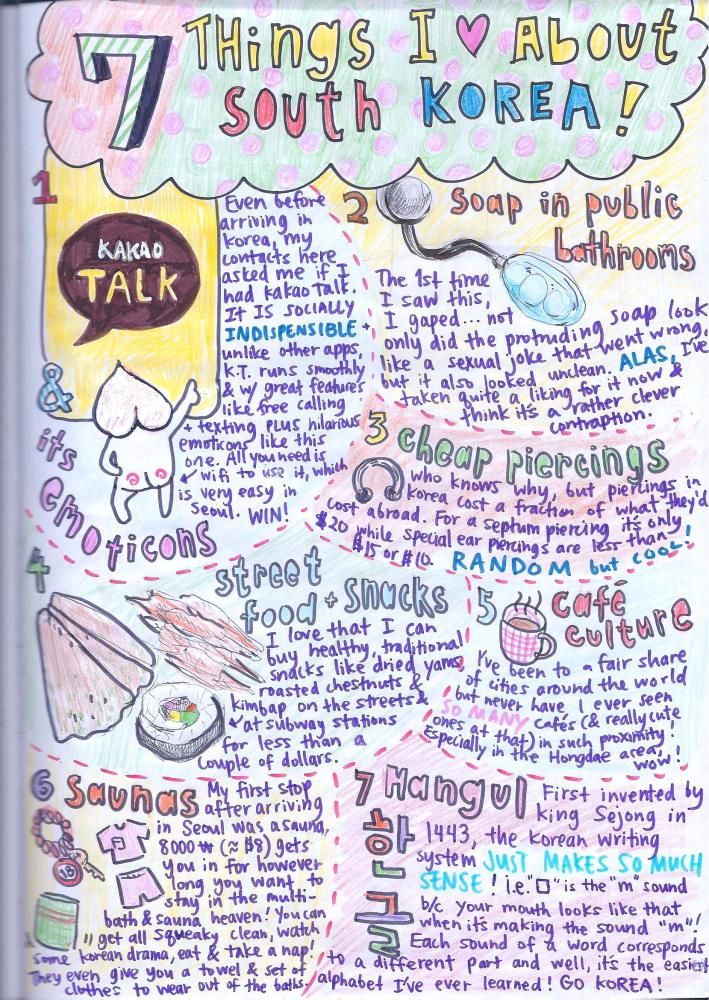 7 THings I ♥ About
South KOREA!
1
KAKAO
TALK
Even before
arriving in
Korea, my
contacts here
asked me if I
had kakao talk.
IT IS SOCIALLY
INDISPENSIBLE +
unlike other apps,
K.T. runs smoothly
& w/ great features
like free calling
+ texting PLUS hilarious
emoticons like this
one. All you need is
wifi to use it, which
is very easy in
Seoul. WIN!
&
its
emoticons
2 Soap in public
bathrooms
The 1st time
I saw this,
I gaped... not
only did the protruding soap look
like a sexual joke that went wrong,
but it also looked unclean. ALAS, I've
taken quite a liking for it now &
think it's a rather clever
contraption.
3 cheap piercings
who knows why, but piercings in
Korea cost a fraction of what they'd
cost abroad. For a septum piercing it's only
$20 while special ear piercings are less than
$15 or $10. RANDOM but COOL!
4 street
food + snacks
I love that I can
buy healthy, traditional
snacks like dried yams,
roasted chestnuts &
kimbap on the streets &
at subway stations
for less than a
couple of dollars.
5 café
culture
I've been to a fair share
of cities around the world
but never have I ever seen
SO MANY cafés (& really cute
ones at that) in such proximity!
Especially in the Hongdae area,
wow!
6 Saunas
My first stop
after arriving
in Seoul was a sauna,
8000 ₩ (≈ $8) gets
you in for however
long you want to
stay in the multi-
bath & sauna heaven! You can
get all squeaky clean, watch
some korean drama, eat & take a nap!
They even give you a towel & set of
clothes to wear out of the baths.
18
7 Hangul
한
글
First invented by
king Sejong in
1443, the Korean writing
system JUST MAKES SO MUCH
SENSE! i.e. "ㅁ" is the "m" sound
b/c your mouth looks like that
when it's making the sound "m"!
Each sound of a word corresponds
to a different part and well, it's the easiest
alphabet I've ever learned! GO KOREA!